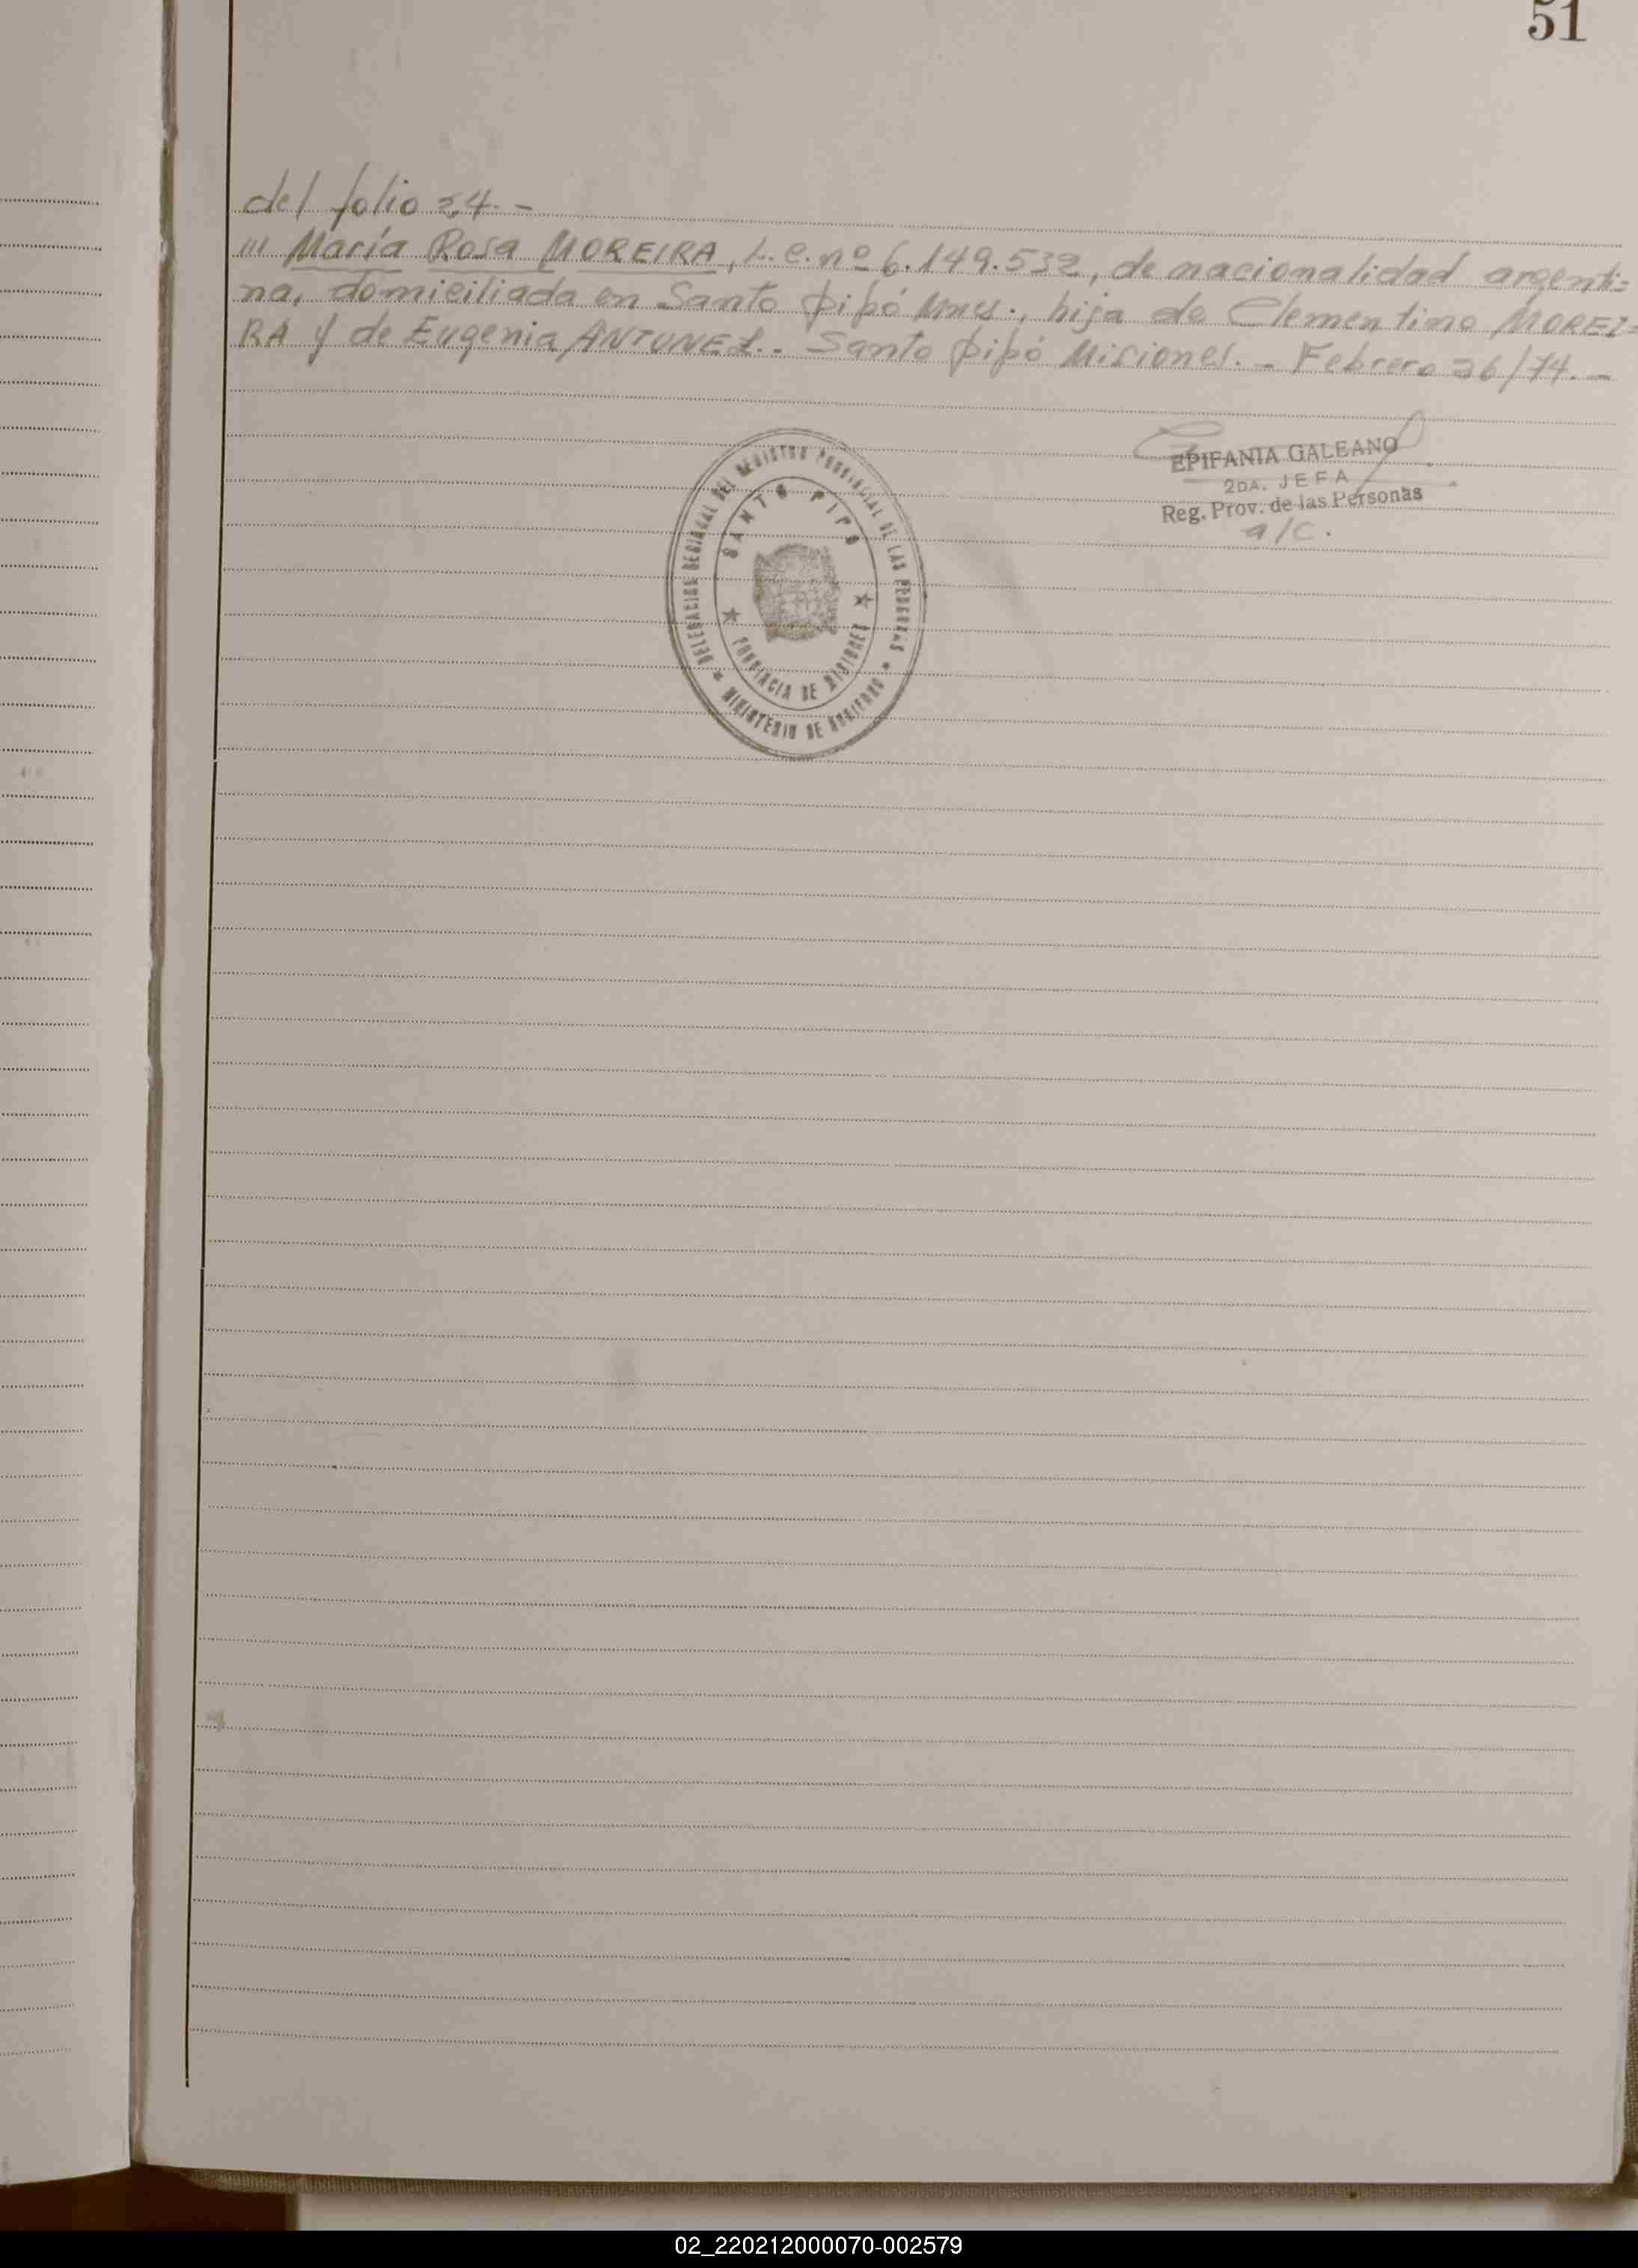 51
del folio 24.-
/// María Rosa MOREIRA, L.C.nº 6.149.532, de nacionalidad argenti=
na, domiciliada en Santo Pipó Mnes., hija de Clementino MOREI=
RA y de Eugenia ANTUNEZ.- Santo Pipó Misiones.- Febrero 26/74.-
EPIFANIA GALEANO
2DA. JEFA
Reg. Prov. de las Personas
a/c.
DELEGACION REGIONAL DEL REGISTRO PROVINCIAL DE LAS PERSONAS
SANTO PIPO
PROVINCIA DE MISIONES
MINISTERIO DE GOBIERNO
02_220212000070-002579